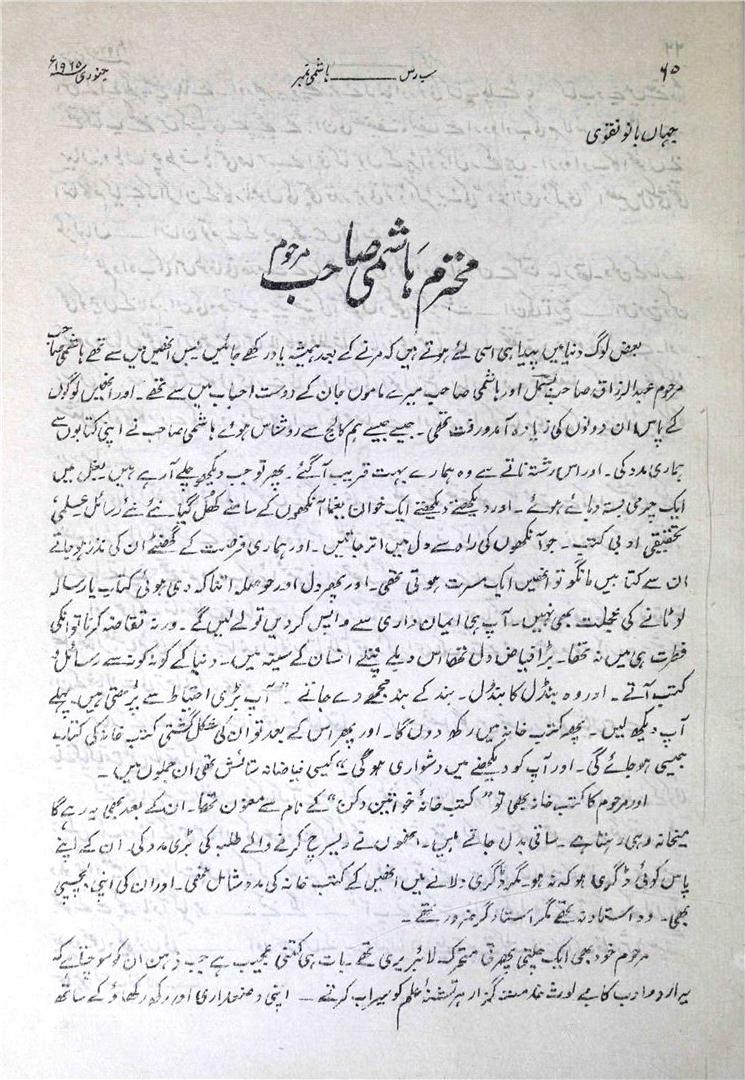 ۶۵ سب رس ــــــ ہاشمی نمبر جنوری ۱۹۶۵ء
جہاں بانو نقوی
محترم ہاشمی صاحب مرحوم
بعض لوگ دنیا میں پیدا ہی اسی لئے ہوتے ہیں کہ مرنے کے بعد ہمیشہ یاد رکھے جائیں بس انھیں میں سے تھے ہاشمی صاحب
مرحوم عبدالرزاق صاحب بسمل اور ہاشمی صاحب میرے ماموں جان کے دوست احباب میں سے تھے۔ اور انھیں لوگوں
کے پاس ان دونوں کی زیادہ آمد و رفت تھی۔ جیسے جیسے ہم کالج سے روشناس ہوئے ہاشمی صاحب نے اپنی کتابوں سے
ہماری مدد کی۔ اور اس رشتہ ناتے سے وہ ہمارے بہت قریب آگئے۔ پھر تو جب دیکھو چلے آرہے ہیں بغل میں
ایک چرمی بستہ دبائے ہوئے۔ اور دیکھتے دیکھتے ایک خوان یغما آنکھوں کے سامنے کھل گیا نئے نئے رسائل علمی،
تحقیقی ادبی کتب۔ جو آنکھوں کی راہ سے دل میں اتر جائیں۔ اور ہماری فرصت کے گھنٹے ان کی نذر ہو جاتے
ان سے کتابیں مانگو تو انھیں ایک مسرت ہوتی تھی۔ اور پھر دل اور حوصلہ اتنا کہ دی ہوئی کتاب یا رسالہ
لوٹانے کی عجلت بھی نہیں۔ آپ ہی ایمان داری سے واپس کر دیں تو لے لیں گے۔ ورنہ تقاضہ کرنا تو انکی
فطرت ہی میں نہ تھا۔ بڑا فیاض دل تھا اس دبلے پتلے انسان کے سینہ میں۔ دنیا کے کونہ کونہ سے رسائل و
کتب آتے۔ اور وہ بنڈل کا بنڈل۔ بند کے بند مجھے دے جاتے۔ "آپ بڑی احتیاط سے پڑھتی ہیں۔ پہلے
آپ دیکھ لیں۔ پھر کتب خانہ میں رکھ دوں گا۔ اور پھر اس کے بعد تو ان کی شکل گشتی کتب خانہ کی کتاب
جیسی ہو جائے گی۔ اور آپ کو دیکھنے میں دشواری ہوگی" کیسی فیاضانہ ستائش تھی ان جملوں میں۔
اور مرحوم کا کتب خانہ بھی تو "کتب خانۂ خواتین دکن" کے نام سے معنون تھا۔ ان کے بعد بھی یہ رہے گا
میخانہ وہی رہتا ہے۔ ساقی بدل جاتے ہیں۔ انھوں نے ریسرچ کرنے والے طلبہ کی بڑی مدد کی۔ ان کے اپنے
پاس کوئی ڈگری ہو کہ نہ ہو۔ مگر ڈگری دلانے میں انھیں کے کتب خانہ کی مدد شامل تھی۔ اور ان کی اپنی دلچسپی
بھی۔ وہ استاد نہ تھے مگر استاد گر ضرور تھے۔
مرحوم خود بھی ایک چلتی پھرتی متحرک لائبریری تھے۔ بات ہی کتنی عجیب ہے جب ذہن ان کو سوچتا ہے کہ
یہ اردو ادب کا بے لوث خدمت گزار ہر تشنۂ علم کو سیراب کرتے ــ اپنی وضعداری اور رکھ رکھاؤ کے ساتھ